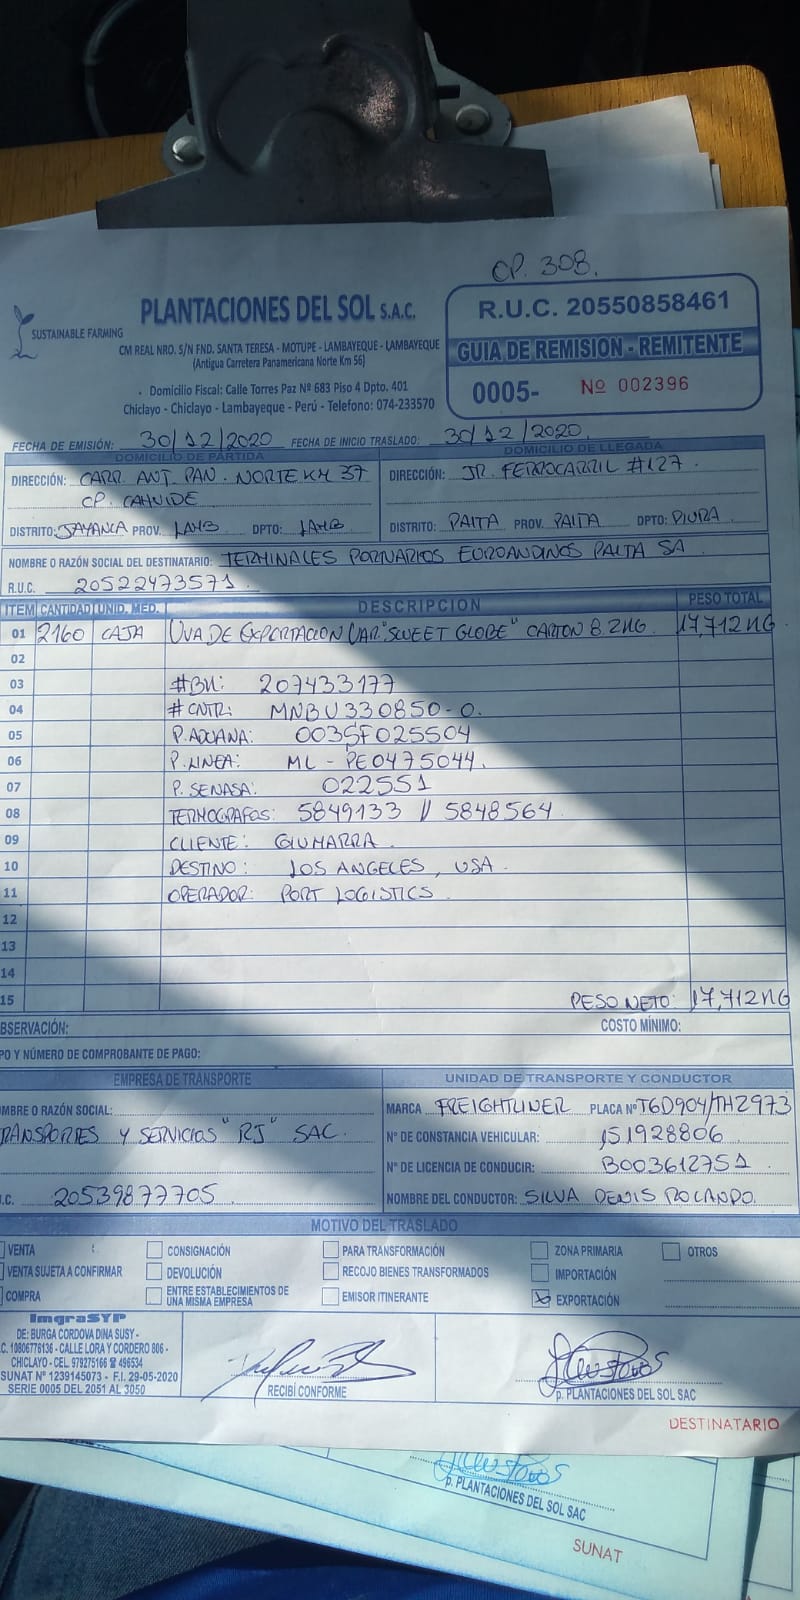 CP. 308.
PLANTACIONES DEL SOL S.A.C.
SUSTAINABLE FARMING
CM REAL NRO. S/N FND. SANTA TERESA - MOTUPE - LAMBAYEQUE - LAMBAYEQUE
(Antigua Carretera Panamericana Norte Km 56)
Domicilio Fiscal: Calle Torres Paz Nº 683 Piso 4 Dpto. 401
Chiclayo - Chiclayo - Lambayeque - Perú - Telefono: 074-233570
R.U.C. 20550858461
GUIA DE REMISION - REMITENTE
0005- Nº 002396
FECHA DE EMISIÓN: 30/12/2020 FECHA DE INICIO TRASLADO: 30/12/2020
DOMICILIO DE PARTIDA
DIRECCIÓN: CARR. ANT. PAN. NORTE KM 37
CP. CAHUIDE
DISTRITO: JAYANCA PROV. LAMB. DPTO: LAMB
DOMICILIO DE LLEGADA
DIRECCIÓN: JR. FERROCARRIL #127.
DISTRITO: PAITA PROV. PAITA DPTO: PIURA
NOMBRE O RAZÓN SOCIAL DEL DESTINATARIO: TERMINALES PORTUARIOS EUROANDINOS PAITA SA
R.U.C. 20522473571.
ITEM CANTIDAD UNID. MED. DESCRIPCION PESO TOTAL
01 2160 CAJA UVA DE EXPORTACION VAR "SWEET GLOBE" CARTON 8.2KG. 17,712KG
02
03 #BK: 207433177
04 #CNTR: MNBU330850-0.
05 P.ADUANA: 003SF025504
06 P.LINEA: ML-PE0475044.
07 P. SENASA: 022551
08 TERMOGRAFOS: 5849133 // 5848564
09 CLIENTE: GIUMARRA.
10 DESTINO: LOS ANGELES, USA.
11 OPERADOR: PORT LOGISTICS
12
13
14
15 PESO NETO: 17,712KG
BSERVACIÓN: COSTO MÍNIMO:
PO Y NÚMERO DE COMPROBANTE DE PAGO:
EMPRESA DE TRANSPORTE
MBRE O RAZÓN SOCIAL:
RANSPORTES Y SERVICIOS "RJ" SAC.
.C. 20539877705
UNIDAD DE TRANSPORTE Y CONDUCTOR
MARCA FREIGHTLINER PLACA Nº T6D904/TH2973
Nº DE CONSTANCIA VEHICULAR: 151928806
Nº DE LICENCIA DE CONDUCIR: B003612751
NOMBRE DEL CONDUCTOR: SILVA DENIS ROLANDO.
MOTIVO DEL TRASLADO
VENTA CONSIGNACIÓN PARA TRANSFORMACIÓN ZONA PRIMARIA OTROS
VENTA SUJETA A CONFIRMAR DEVOLUCIÓN RECOJO BIENES TRANSFORMADOS IMPORTACIÓN
COMPRA ENTRE ESTABLECIMIENTOS DE UNA MISMA EMPRESA EMISOR ITINERANTE EXPORTACIÓN
ImgraSYP
DE: BURGA CORDOVA DINA SUSY -
.C. 10806776136 - CALLE LORA Y CORDERO 806 -
CHICLAYO - CEL. 979275166 ☎ 496534
SUNAT Nº 1239145073 - F.I. 29-05-2020
SERIE 0005 DEL 2051 AL 3050
RECIBÍ CONFORME
p. PLANTACIONES DEL SOL SAC
DESTINATARIO
p. PLANTACIONES DEL SOL SAC
SUNAT